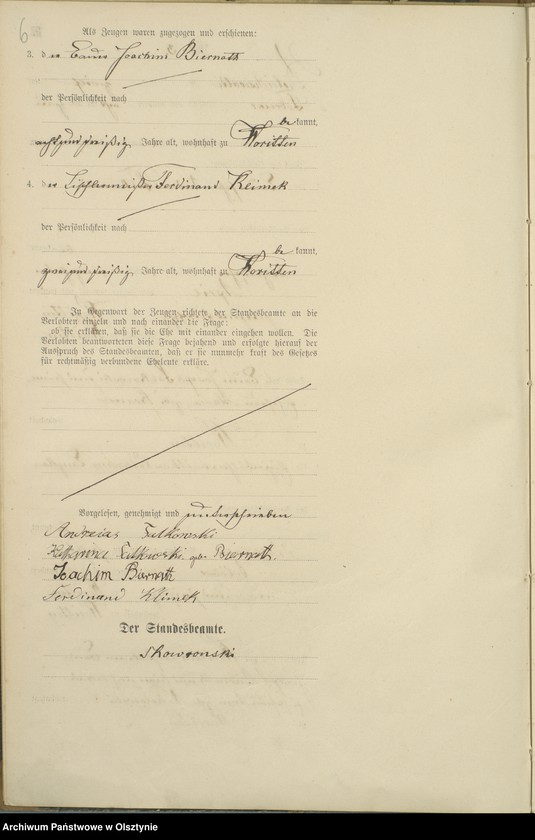 6
Als Zeugen waren zugezogen und erschienen:
3. der Bauer Joachim Biernath
der Persönlichkeit nach
bekannt,
achtunddreißig Jahre alt, wohnhaft zu Woritten
4. der Tischlermeister Ferdinand Klimek
der Persönlichkeit nach
bekannt,
zweiunddreißig Jahre alt, wohnhaft zu Woritten
In Gegenwart der Zeugen richtete der Standesbeamte an die
Verlobten einzeln und nach einander die Frage:
ob sie erklären, daß sie die Ehe mit einander eingehen wollen. Die
Verlobten beantworteten diese Frage bejahend und erfolgte hierauf der
Ausspruch des Standesbeamten, daß er sie nunmehr kraft des Gesetzes
für rechtmäßig verbundene Eheleute erkläre.
Vorgelesen, genehmigt und unterschrieben
Andreias Falkowski
Katharina Falkowski geb. Biernath.
Joachim Biernath
Ferdinand Klimek
Der Standesbeamte.
Skowronski
Archiwum Państwowe w Olsztynie